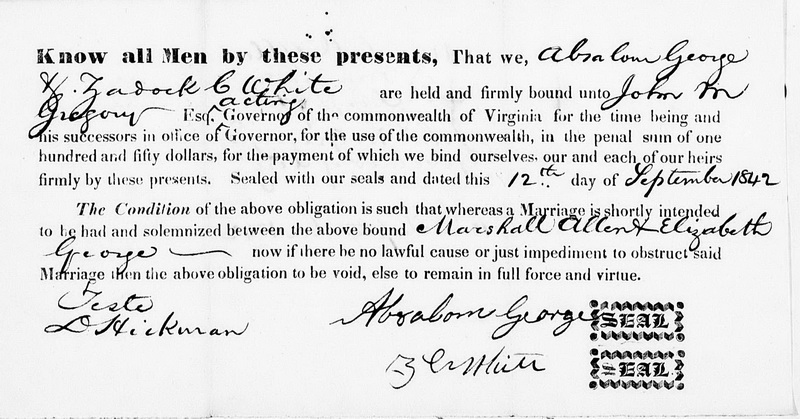 Know all Men by these presents, That we, Absalom George
& Zadock C White are held and firmly bound unto John M
Gregory Esq. acting Governor of the commonwealth of Virginia for the time being and
his successors in office of Governor, for the use of the commonwealth, in the penal sum of one
hundred and fifty dollars, for the payment of which we bind ourselves, our and each of our heirs
firmly by these presents. Sealed with our seals and dated this 12th day of September 1842
The Condition of the above obligation is such that whereas a Marriage is shortly intended
to be had and solemnized between the above bound Marshall Allen & Elizabeth
George now if there be no lawful cause or just impediment to obstruct said
Marriage then the above obligation to be void, else to remain in full force and virtue.
Teste
D Hickman
Absalom George SEAL
Z C White SEAL